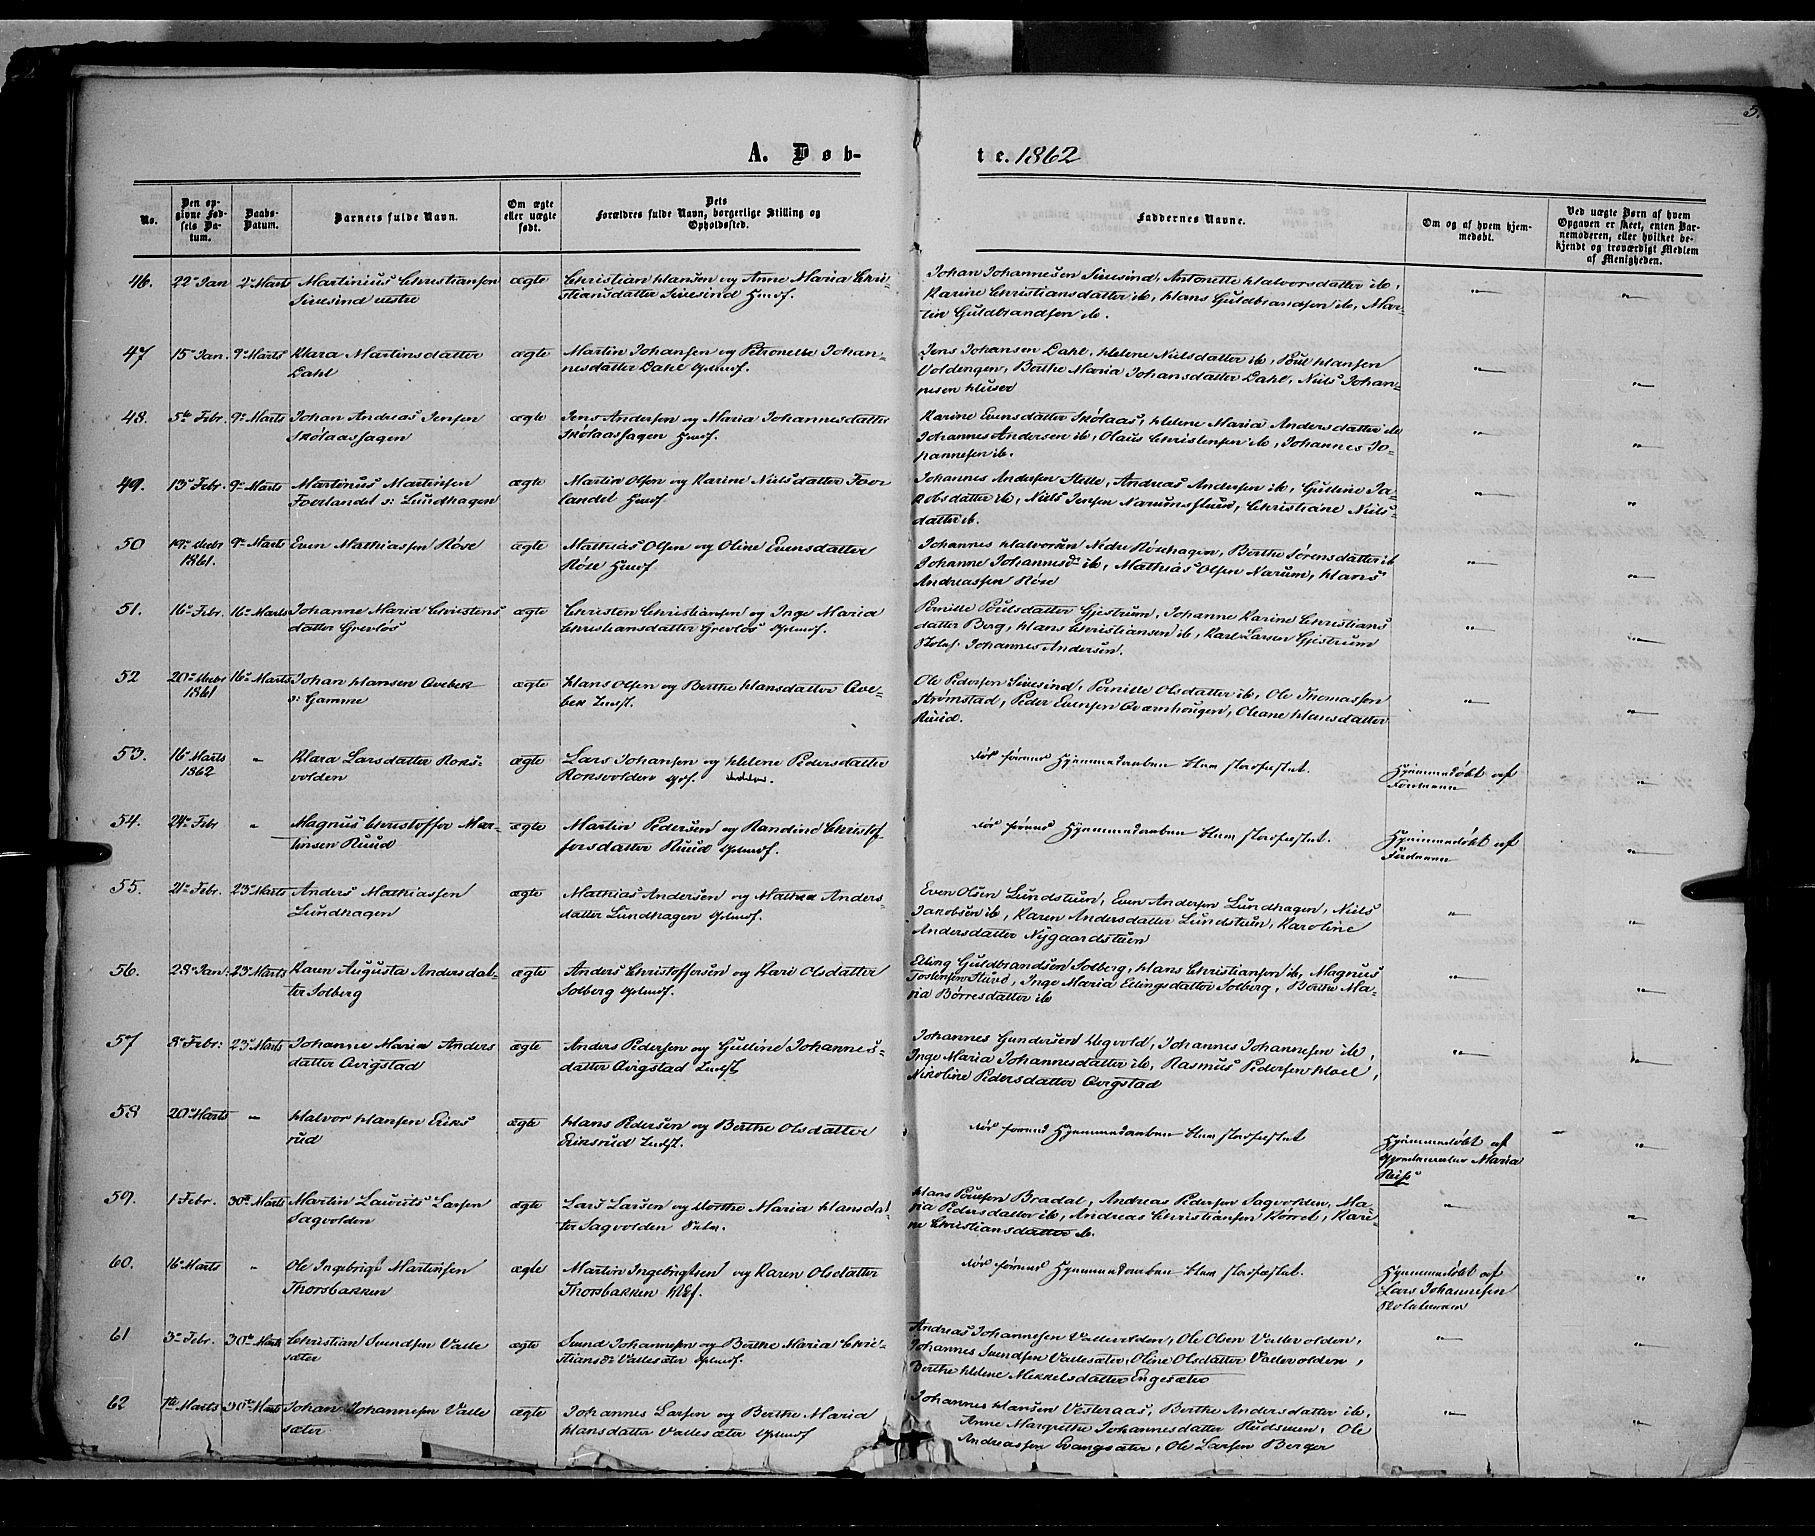 5.
A. Døb-
te. 1862
No.
Den op-
givne Fød-
sels Da-
tum.
Daabs-
Datum.
Barnets fulde Navn.
Om ægte
eller uægte
født.
Dets
Forældres fulde Navn, borgerlige Stilling og
Opholdssted.
Faddernes Navne.
Om og af hvem hjem-
medøbt.
Ved uægte Børn af hvem
Opgaven er skeet, enten Bar-
nemoderen, eller hvilket be-
kjendt og troværdigt Medlem
af Menigheden.
46. 22 Jan 2 Marts Martinius Christiansen
Sivesind vestre
ægte
Christian Hansen og Anne Maria Chri-
stiansdatter Sivesind Huusf.
Johan Johannesen Sivesind, Antonette Halvorsdatter ib,
Karine Christiansdatter ib, Hans Guldbrandsen ib, Mar-
tin Guldbrandsen ib.
47 15 Jan. 9 Marts Klara Martinsdatter
Dahl
ægte
Martin Johansen og Petronelle Johan-
nesdatter Dahl
Jens Johansen Dahl, Helene Nielsdatter ib, Poul Hansen
Voldengen, Berthe Maria Johansdatter Dahl, Niels Johan-
nesen Huser
48. 5te Febr. 9 Marts Johan Andreas Jensen
Skølaashagen
ægte
Jens Andersen og Maria Johannesdatter
Skølaashagen Huusf.
Karine Evensdatter Skølaas, Helene Maria Andersdatter ib
Johannes Andersen ib, Olaus Christensen ib, Johannes Jo-
hannesen ib.
49. 13 Febr. 9 Marts Martinus Martinsen
Faverlandet s: Lundhagen
ægte
Martin Olsen og Karine Nielsdatter Faver
landet Huusf.
Johannes Andersen Stelle, Andreas Andersen ib, Gulline Ja-
kobsdatter ib, Niels Jensen Narumstuen, Christiane Niels-
datter ib.
50 19 Decbr 1861. 9 Marts Even Mathiassen Røse
ægte
Mathias Olsen og Oline Evensdatter
Røse Huusf
Johannes Halvorsen Nedre Røsehagen, Berthe Sørensdatter ib
Johanne Johannesd. ib, Mathias Olsen Narum, Hans
Andreassen Røse
51. 16 Febr. 16 Marts Johanne Maria Christens
datter Grevløs
ægte
Christen Christiansen og Inge Maria
Christiansdatter Grevløs
Pernille Poulsdatter Gjestrum, Johanne Karine Christians
datter Berg, Hans Christiansen ib, Karl Larsen Gjestrum
Johannes Andersen.
52 20 Decbr 1861 16 Marts Johan Hansen Qvebek
s: Gamme
ægte
Hans Olsen og Berthe Hansdatter Qve-
bek Indst.
Ole Pedersen Sivesind, Pernille Olsdatter ib, Ole Thomassen
Strømstad, Peder Evensen Qværnhougen, Oleane Hansdatter
Ruud.
53. 16 Marts 1862 Klara Larsdatter Roks-
volden
ægte
Lars Johansen og Helene Pedersdatter
Roksvolden
død forend Hjemmedaaben blev stadfæstet.
Hjemmedøbt af
Fordmoren
54. 24 Febr Magnus Christoffer Mar-
tinsen Ruud
ægte
Martin Pedersen og Randine Christof
fersdatter Ruud
død forend Hjemmedaaben blev stadfæstet.
Hjemmedøbt af
55. 21 Febr. 23 Marts Anders Mathiassen
Lundhagen
ægte
Mathias Andersen og Mathea Anders-
datter Lundhagen
Even Olsen Lundstuen, Even Andersen Lundhagen, Niels
Jakobsen ib, Karen Andersdatter Lundstuen, Karoline
Andersdatter Nygaardstuen
56. 28 Jan: 23 Marts Karen Augusta Andersdat-
ter Solberg
ægte
Anders Christoffersen og Kari Olsdatter
Solberg
Elling Guldbrandsen Solberg, Hans Christiansen ib, Magnus
Tostensen, Inge Maria Ellingsdatter Solberg, Berthe Ma-
ria Børresdatter ib
57 8 Febr: 23 Marts Johanne Maria Anders
datter Qvigstad
ægte
Anders Pedersen og Gulline Johannes-
datter Qvigstad Indst
Johannes Gundersen Hegvold, Johannes Johannesen ib,
Inge Maria Johannesdatter ib, Rasmus Pedersen Hoel,
Nikoline Pedersdatter Qvigstad
58 20 Marts Halvor Hansen Eriks
rud
ægte
Hans Pedersen og Berthe Olsdatter
Eriksrud Indst.
død forend Hjemmedaaben blev stadfæstet
Hjemmedøbt af
Maria
59. 1 Febr. 30 Marts Martin Laurits Larsen
Sagvolden
ægte
Lars Larsen og Dorthe Maria Hansdat
ter Sagvolden
Hans Poulsen Bradal, Andreas Pedersen Sagvolden, Ma-
ria Pedersdatter ib, Andreas Christiansen Kørret, Kari-
ne Christiansdatter ib.
60. 16 Marts Ole Ingebrigt Martinsen
Thorsbakken
ægte
Martin Ingebrigtsen og Karen Olsdatter
Thorsbakken
død forend Hjemmedaaben blev stadfæstet.
Hjemmedøbt af
Lars Johannesen
61 3 Febr. 30 Marts Christian Svendsen Valle
sæter
ægte
Svend Johannesen og Berthe Maria Chri-
stiansd: Vallesæter
Andreas Johannesen Vallevolden, Ole Olsen Vallevolden,
Johannes Svendsen Vallesæter, Oline Olsdatter Vallevolden,
Berthe Helene Mikkelsdatter Engesæter
62 1te Marts 30 Marts Johan Johannesen Valle
sæter
ægte
Johannes Larsen og Berthe Maria
Hansdatter Vallesæter
Johannes Hansen Vesteraas, Berthe Andersdatter ib,
Anne Margrethe Johannesdatter, Ole
Andreassen Evangsæter, Ole Larsen Berger